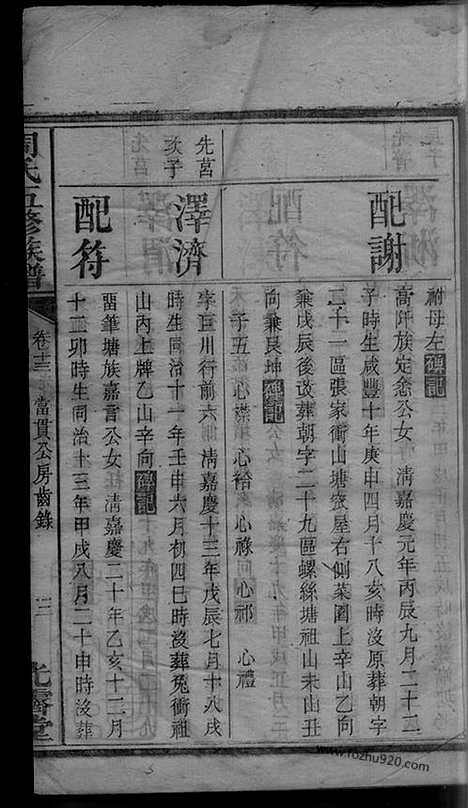 祔母左碑記
配謝
高阡族定㤙公女 清嘉慶元年丙辰九月二十二
子時生咸豐十年庚申四月十八亥時沒原葬朝字
二十一區張家衝山塘窊屋右側菜園上辛山乙向
兼戊辰後改葬朝字二十九區螺絲塘祖山未山丑
向兼艮坤碑記
子五 心襟 心裕 心祿 心祁 心禮
先莒次子
澤濟
字巨川行前六 清嘉慶十三年戊辰七月十八戌
時生同治十一年壬申六月初四巳時沒葬兔衝祖
山內上牌乙山辛向碑記
配符
畱筆塘族嘉言公女 清嘉慶二十年乙亥十二月
十二卯時生同治十三年甲戌八月二十申時沒葬
周氏五修族譜
卷十三 富貫公房齒錄
三
光霽堂
www.fozhu920.com